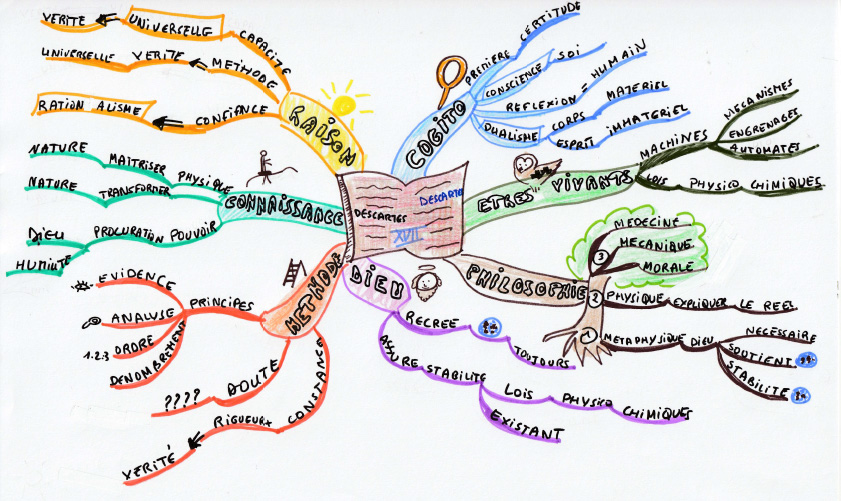 DESCARTES
XVII
DESCARTES
RAISON
CAPACITE
UNIVERSELLE
VERITE
METHODE
VERITE
UNIVERSELLE
CONFIANCE
RATIONALISME
COGITO
PREMIÈRE CERTITUDE
CONSCIENCE SOI
REFLEXION = HUMAIN
DUALISME
CORPS MATERIEL
ESPRIT IMMATERIEL
ETRES VIVANTS
MACHINES
MECANISMES
ENGRENAGES
AUTOMATES
LOIS PHYSICO CHIMIQUES
PHILOSOPHIE
3
MEDECINE
MECANIQUE
MORALE
2
PHYSIQUE EXPLIQUER LE REEL
1
METAPHYSIQUE DIEU
NECESSAIRE
SOUTIENT
STABILITE
DIEU
RECREE
TOUJOURS
ASSURE STABILITE
LOIS PHYSICO CHIMIQUES
EXISTANT
METHODE
PRINCIPES
EVIDENCE
ANALYSE
1.2.3 ORDRE
DENOMBREMENT
DOUTE
????
CONSTANCE
RIGUEUR
VERITÉ
CONNAISSANCE
PHYSIQUE
MAITRISER
NATURE
TRANSFORMER
NATURE
POUVOIR
PROCURATION
DIEU
HUMILITÉ